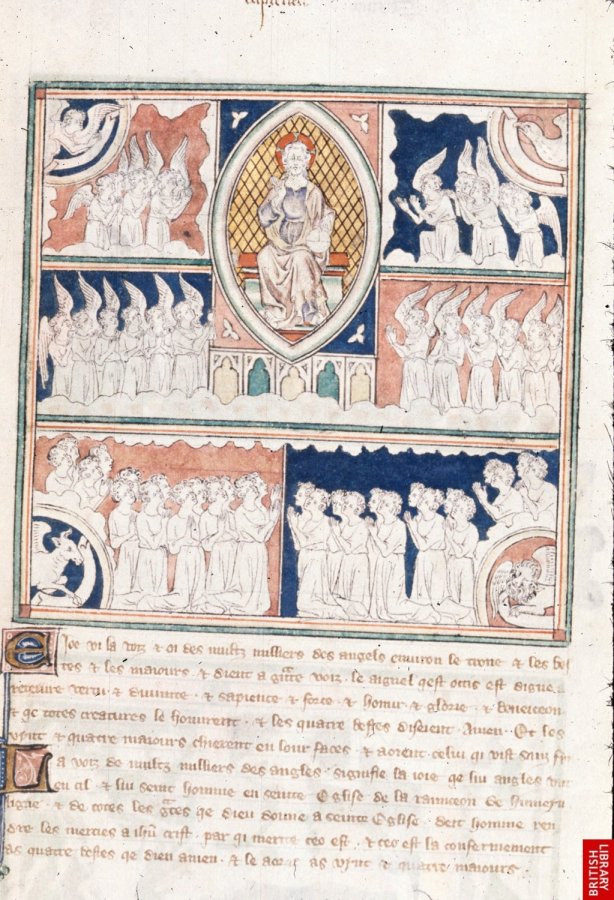 E ioe vi la voiz & oi des multz milliers des angels environ le trone & les bes
tes & les maiours & dient a gñte voiz le aignel qest occis est digne a
receivre vertu & divinite & sapience & force & honur & glorie & beneiceon
& qe totes creatures le honurent & les quatre bestes diseient Amen Et les
vynt & quatre maiours cheierent en lour faces & aorent celui qi vist sanz fyn
La voiz de multz milliers des angles signifie la ioie qe lui angles unt
en ciel & lui seint homme en seinte Eglise de la raunceon de
ligne & de totes les gñces qe dieu donne a seinte Eglise deit homme ren
dre les mercies a ihũ crist par qi merite ceo est & ceo est la confermement
as quatre bestes qe dieu amen & le as vynt & quatre maiours
BRITISH
LIBRARY